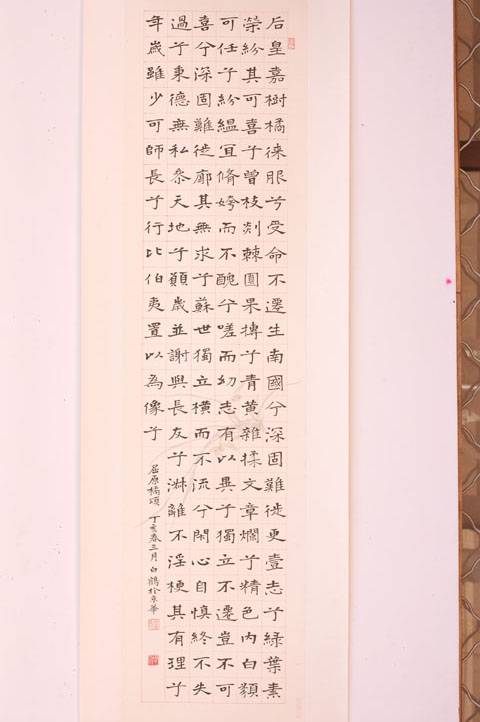 后皇嘉樹橘徠服兮受命不遷生南國兮深固難徙更壹志兮綠葉素
榮紛其可喜兮曾枝剡棘圓果摶兮青黃雜揉文章爛兮精色內白類
可任兮紛緼宜脩姱而不醜兮嗟而幼志有以異兮獨立不遷豈不可
喜兮深固難徙廓其無求兮蘇世獨立橫而不流兮閑心自慎終不失
過兮秉德無私叅天地兮願歲並謝與長友兮淋離不淫梗其有理兮
年歲雖少可師長兮行比伯夷置以為像兮
屈原橘頌 丁亥春三月白鶴於京華